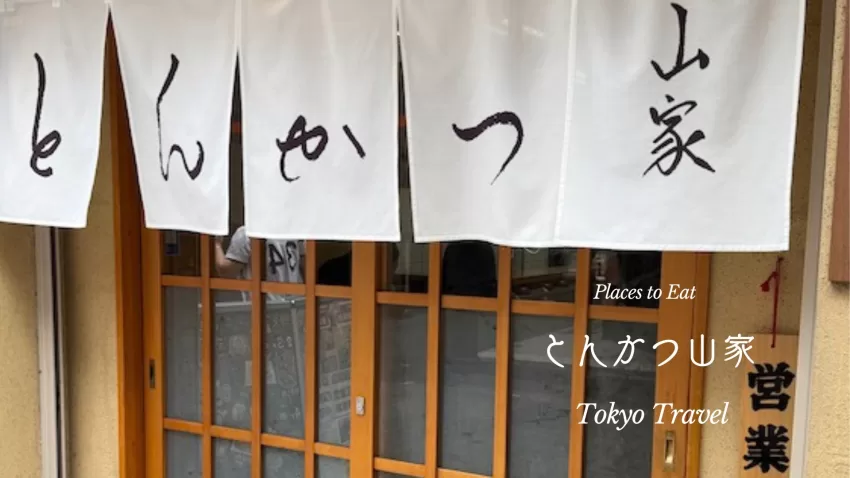 とんかつ 山家
Places to Eat
とんかつ山家
Tokyo Travel
営業